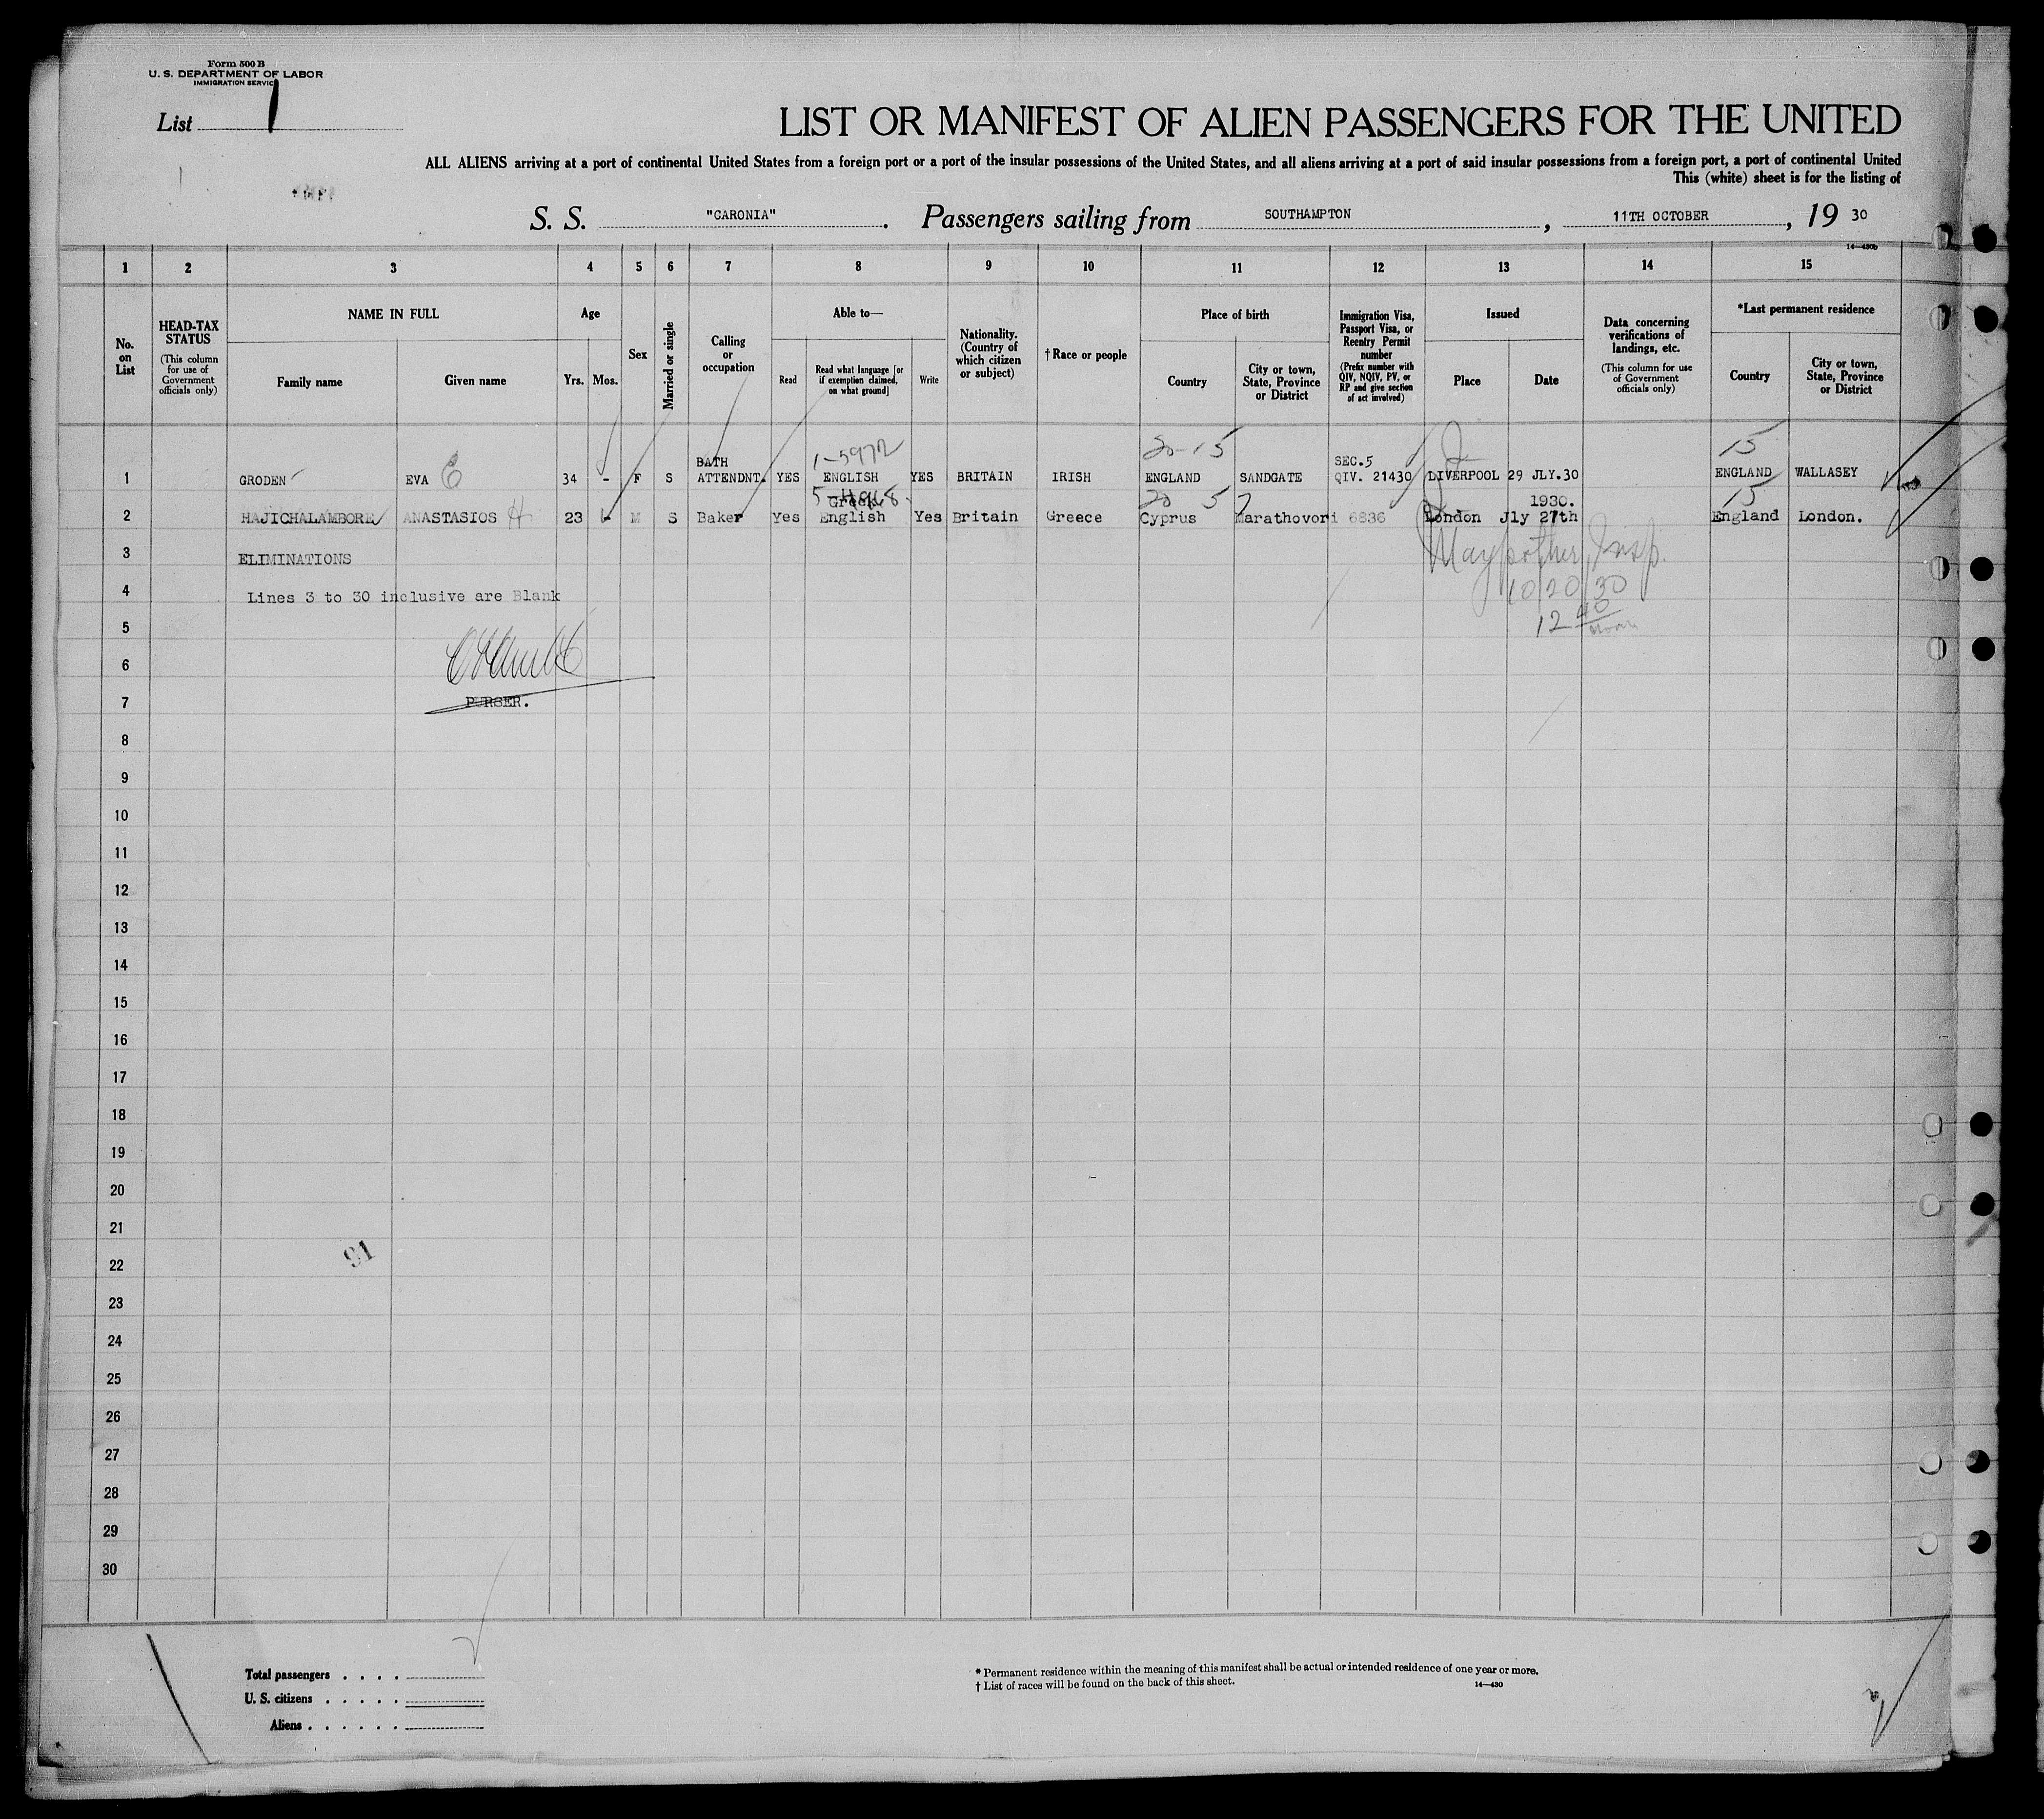 Form 500 B
U. S. DEPARTMENT OF LABOR
IMMIGRATION SERVICE
List 1
LIST OR MANIFEST OF ALIEN PASSENGERS FOR THE UNITED
ALL ALIENS arriving at a port of continental United States from a foreign port or a port of the insular possessions of the United States, and all aliens arriving at a port of said insular possessions from a foreign port, a port of continental United
This (white) sheet is for the listing of
S. S. "CARONIA". Passengers sailing from SOUTHAMPTON, 11TH OCTOBER, 19 30
14—430b
1 2 3 4 5 6 7 8 9 10 11 12 13 14 15
No. on List
HEAD-TAX STATUS
(This column for use of Government officials only)
NAME IN FULL
Family name Given name
Age
Yrs. Mos.
Sex
Married or single
Calling or occupation
Able to—
Read
Read what language [or if exemption claimed, on what ground]
Write
Nationality. (Country of which citizen or subject)
† Race or people
Place of birth
Country
City or town, State, Province or District
Immigration Visa, Passport Visa, or Reentry Permit number
(Prefix number with QIV, NQIV, PV, or RP and give section of act involved)
Issued
Place Date
Data concerning verifications of landings, etc.
(This column for use of Government officials only)
*Last permanent residence
Country
City or town, State, Province or District
1-5972 20-15 15
BATH SEC.5
1 GRODEN EVA E 34 - F S ATTENDNT. YES ENGLISH YES BRITAIN IRISH ENGLAND SANDGATE QIV. 21430 LIVERPOOL 29 JLY.30 ENGLAND WALLASEY
Greek 20 5 1930. 15
2 HAJICHALAMBORE ANASTASIOS H 23 M S Baker Yes English Yes Britain Greece Cyprus Marathovori 6836 London Jly 27th England London.
3 ELIMINATIONS
Insp.
4 Lines 3 to 30 inclusive are Blank
10/20/30
5
12 40
6
7 PURSER.
8
9
10
11
12
13
14
15
16
17
18
19
20
21
91
22
23
24
25
26
27
28
29
30
Total passengers . . . .
U. S. citizens . . . . .
Aliens . . . . . .
* Permanent residence within the meaning of this manifest shall be actual or intended residence of one year or more.
† List of races will be found on the back of this sheet.
14—430